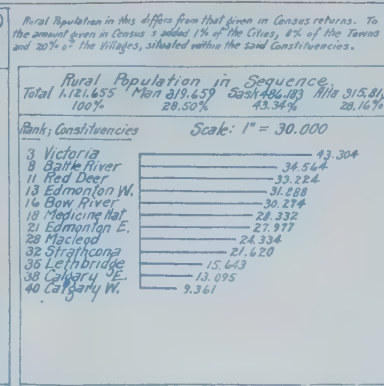 Rural Population in this differs from that given in Census returns. To
the amount given in Census is added 1% of the Cities, 8% of the Towns
and 20% of the Villages, situated within the said Constituencies.
Rural Population in Sequence.
Total 1.121.655 Man 319.659 Sask 486.183 Alta 315.81
100% 28.50% 43.34% 28.16%
Rank; Constituencies Scale: 1" = 30.000
3 Victoria 43.304
8 Battle River 34.564
11 Red Deer 33.224
13 Edmonton W. 31.288
16 Bow River 30.274
18 Medicine Hat 28.332
21 Edmonton E. 27.977
28 Macleod 24.334
32 Strathcona 21.620
36 Lethbridge 15.643
38 Calgary E. 13.095
40 Calgary W. 9.361